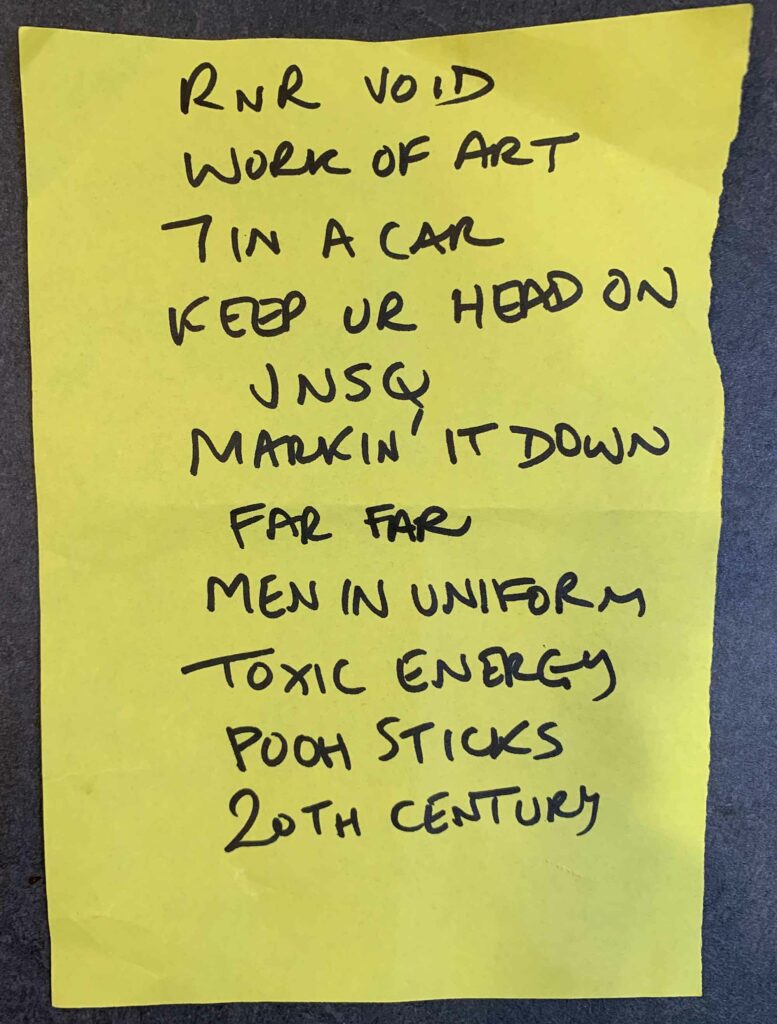 RNR VOID
WORK OF ART
7 IN A CAR
KEEP UR HEAD ON
JNSQ
MARKIN' IT DOWN
FAR FAR
MEN IN UNIFORM
TOXIC ENERGY
POOH STICKS
20TH CENTURY